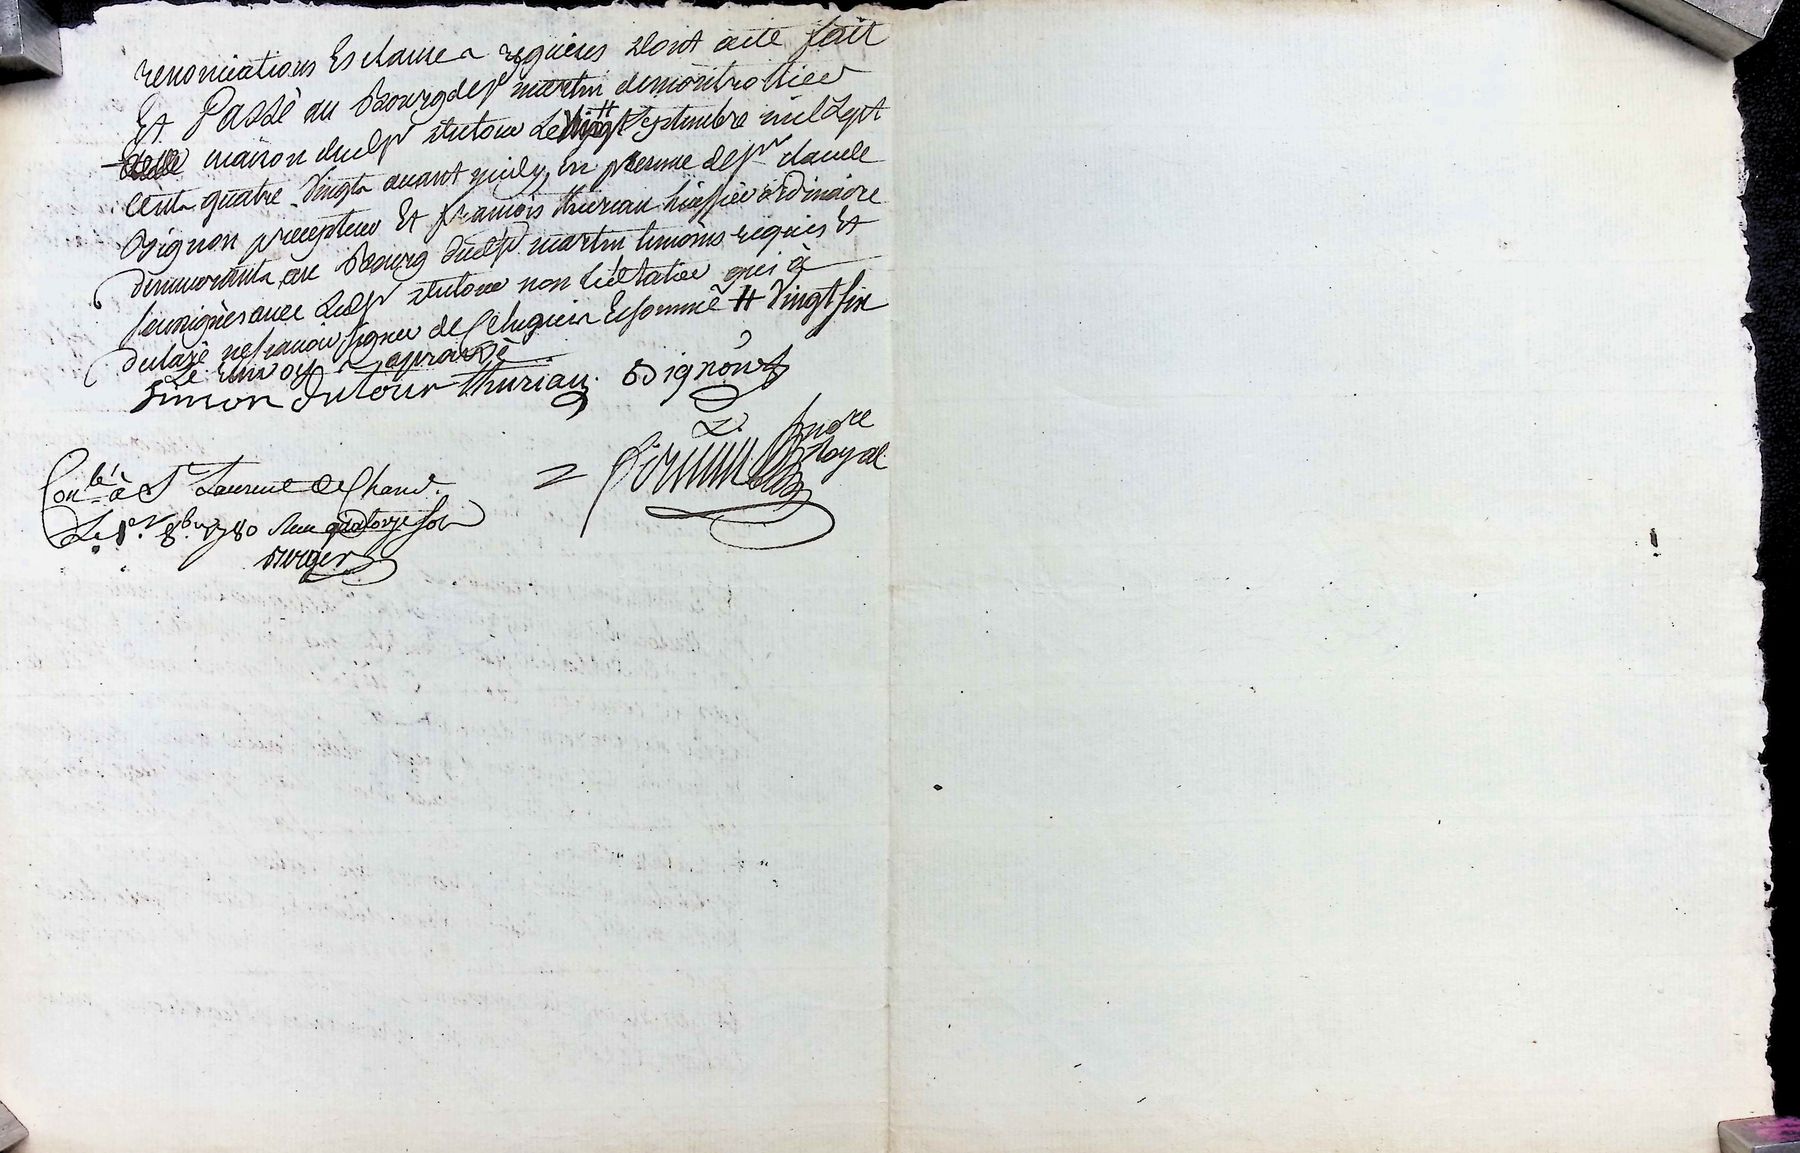 renonciations Et clauses requises dont acte fait
Et Passé au Bourg de St martin
maison dud Sr dutour Le Vingt # Septembre mil Sept
Cents quatre Vingts avant midy, en presence de Sr claude
Bignon precepteur Et françois thuriau huissier ordinaire
demeurants au Bourg dud St martin temoins requis Et
soussignés avec Led Sr dutour non Led qui à
declaré ne scavoir signer de Ce Enquis Et sommé # Vingt six
Le renvoy aprouvé
Simon Dutour thuriau Bignon
No re
Royal
Con lé à St Laurent de Cham.
Le 1er 8bre 1780 Reçu quatorze sols
Berger